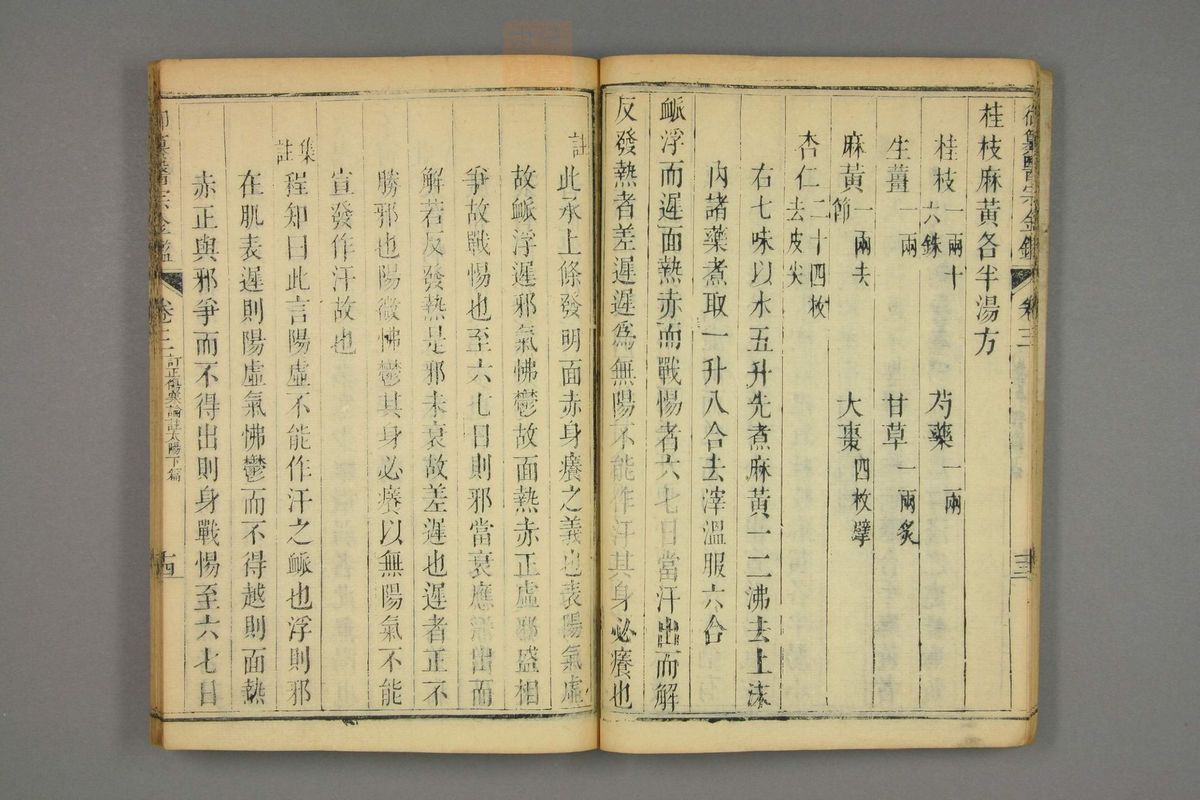 御纂醫宗金鑑 卷三 十三
桂枝麻黃各半湯方
桂枝一兩十六銖 芍藥一兩
生薑一兩 甘草一兩炙
麻黃一兩去節 大棗四枚擘
杏仁二十四枚去皮尖
右七味以水五升先煮麻黃一二沸去上沫
內諸藥煮取一升八合去滓溫服六合
脈浮而遲面熱赤而戰惕者六七日當汗出而解
反發熱者差遲遲為無陽不能作汗其身必癢也
註 此承上條發明面赤身癢之義也表陽氣虛
故脈浮遲邪氣怫鬱故面熱赤正虛邪盛相
爭故戰惕也至六七日則邪當衰應汗出而
解若反發熱是邪未衰故差遲也遲者正不
勝邪也陽微怫鬱其身必癢以無陽氣不能
宣發作汗故也
集註 程知曰此言陽虛不能作汗之脈也浮則邪
在肌表遲則陽虛氣怫鬱而不得越則面熱
赤正與邪爭而不得出則身戰惕至六七日
御纂醫宗金鑑 卷三 訂正傷寒論註太陽下篇 十四